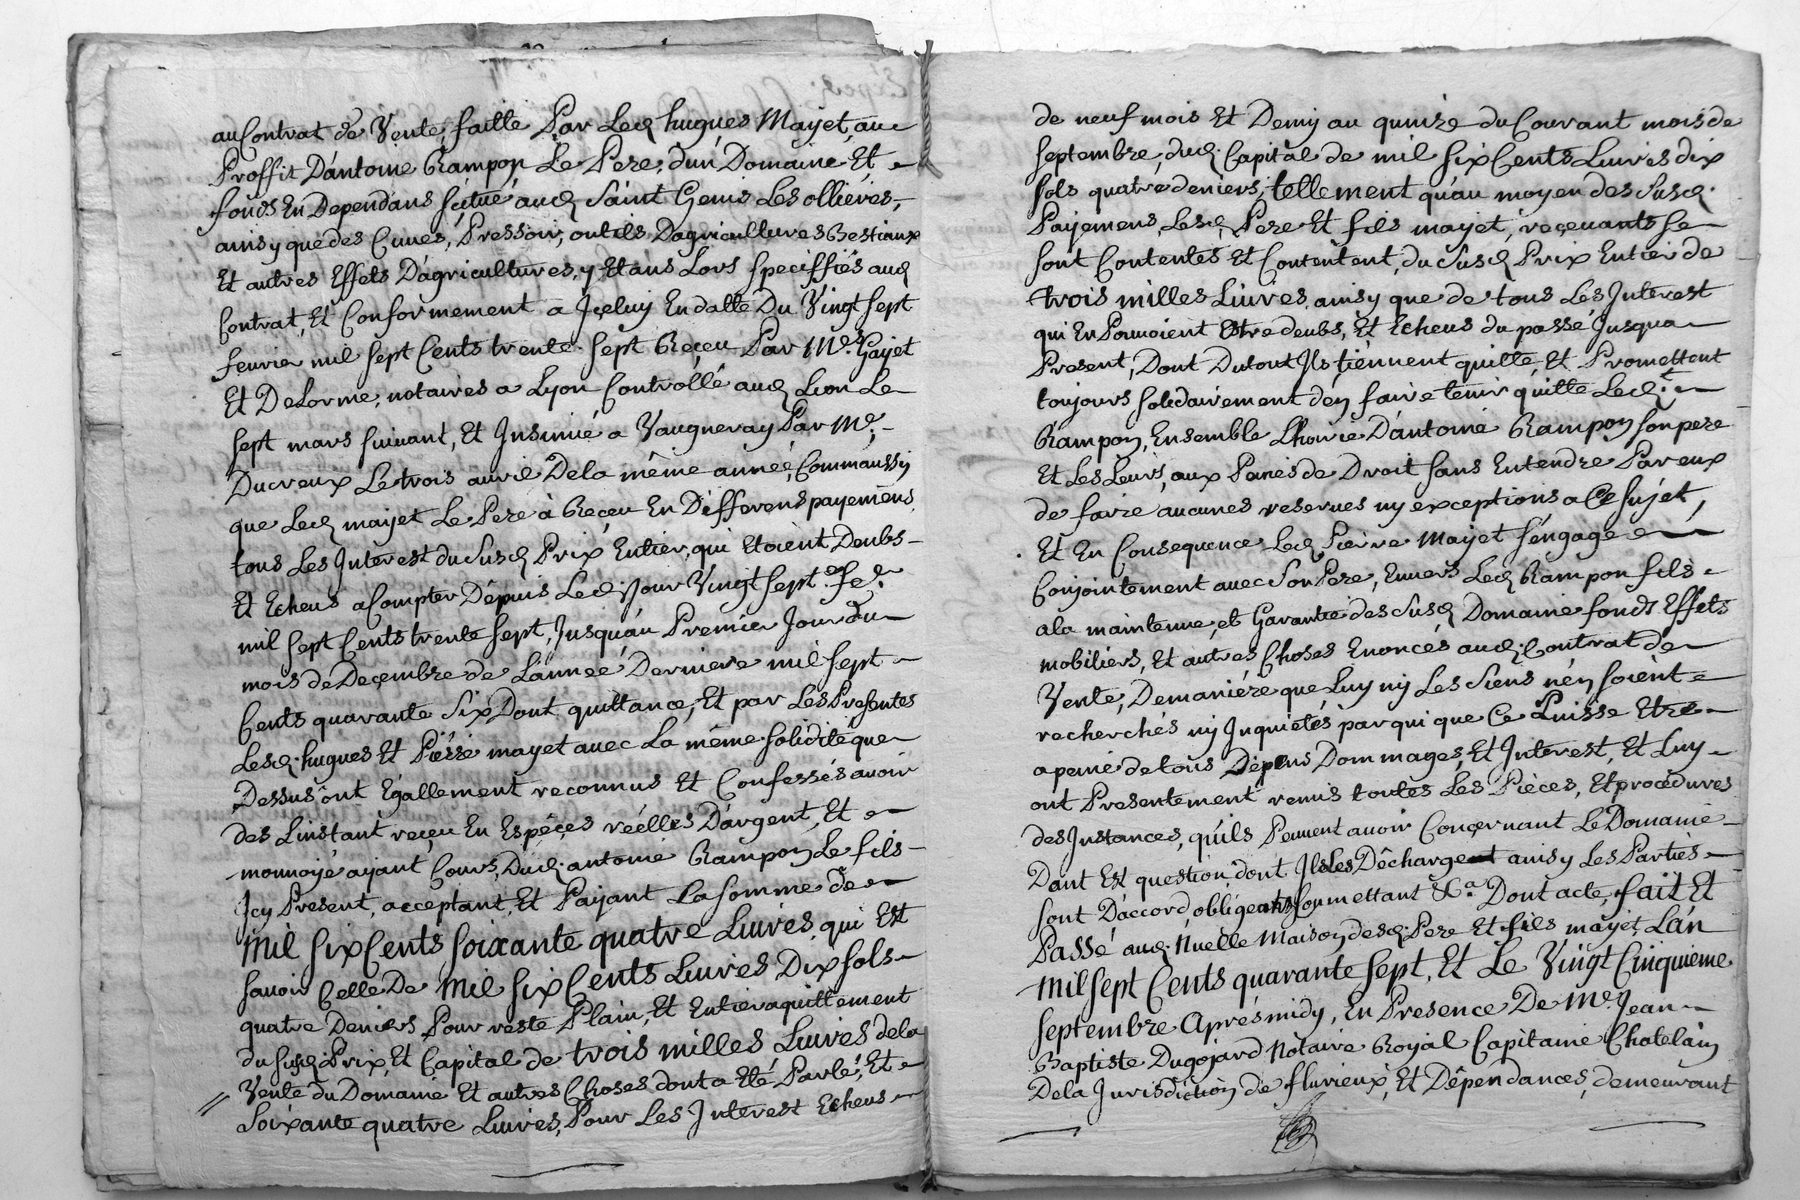 au Contrat de Vente, faitte Par Led hugues Mayet, au
Proffit D'antoine Rampon Le Pere, d'un Domaine Et
fonds En Dependans scitué aud Saint Genis Les ollieres,
ainsy que des Cuves, Pressoir, outils D'agricultures Bestiaux
Et autres Effets D'agricultures, y Etans Lors speciffiés aud
Contrat, Et Conformement a Iceluy En datte Du Vingt sept
feurier mil sept Cents trente sept Reçeu Par Me. Gayet
Et DeLorme, notaires a Lyon Controllé aud Lion Le
sept mars suiuant, Et Insinué a Vaugneray Par Me.
Ducreux Le trois auril De la même année, Comm'aussy
que Led mayet Le Pere à Reçeu En Differens payemens
tous Les Interest du Susd Prix Entier, qui Etoient Deubs
Et Echeus a Compter Depuis Led. Jour Vingt sept fe.
mil sept Cents trente sept, Jusqu'au Premier Jour du
mois de Deçembre de L'année Derniere mil sept
Cents quarante Six Dont quittance, Et par Les Presentes
Lesd. hugues Et Piérre mayet auec La même solidité que
Dessus ont Egallement reconnus Et Confessés auoir
des L'instant reçeu En Espéçes réélles D'argent, Et
monnoyé ayant Cours, Dud. antoine Rampon Le fils
Icy Present, acceptant, Et Paÿant La Somme de
Mil six Cents soixante quatre Liures, qui Est
sauoir Celle De Mil six Cents Liures Dix sols
quatre Deniers Pour reste Plain, Et Entier aquittement
du susd. Prix, Et Capital de trois milles Liures de la
Vente du Domaine Et autres Choses dont a Eté Parlé, Et
// Soixante quatre Liures, Pour Les Interest Echeus
de neuf mois Et Demy au quinze du Courant mois de
septembre, dud. Capital de mil six Cents Liures dix
sols quatre deniers, tellement qu'au moyen des Susd.
Payemens, Lesd. Pere Et fils mayet, reçeuants se
sont Contentes Et Contentent, du Susd Prix Entier de
trois milles Liures ainsy que de tous Les Interest
qui En Pouuoient Estre deubs, Et Echeus du passé Jusqu'a
Present, Dont Du tout Ils tiénnent quitte, Et Promettent
toujours solidairement d'en faire tenir quitte Led. t
Rampon, Ensemble L'hoirie D'antoine Rampon son pere
Et Les Leurs, aux Peines de Droit sans Entendre Par eux
de faire aucunes reserues ny exceptions a Ce sujet,
Et En Consequence Led Pierre Mayet s'éngage
Conjointement auec Son Pere, Enuers Led Rampon fils
a la maintenue, et Garantie des Susd Domaine fonds Effets
mobiliers, Et autres Choses Enoncés aud. Contrat de
Vente, De maniére que Luy ny Les Siens n'én soient
recherchés ny Inquietés par qui que Ce Puisse Etre
a peine de tous Dépens Dommages, Et Interest, Et Luy
ont Presentement remis toutes Les Pièces, Et procedures
des Instances, qu'ils Peuuent auoir Conçernant Le Domaine
Dont Est question dont Ils Les Déchargent ainsy Les Parties
sont D'accord obligeants soumettant &a. Dont acte, fait Et
Passé aud. Nuelle Maison desd. Pere Et fils mayet L'an
Mil sept Cents quarante sept, Et Le Vingt Cinquiéme
septembre Aprés midy, En Presence De Me. Jean
Baptiste Dugojard Notaire Royal Capitaine Chatelain
De la Jurisdiction de fleurieux, Et Dépendances, demeurant